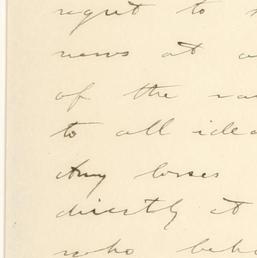 regret to
news at
of the
to all idea
Any losses
directly at
who